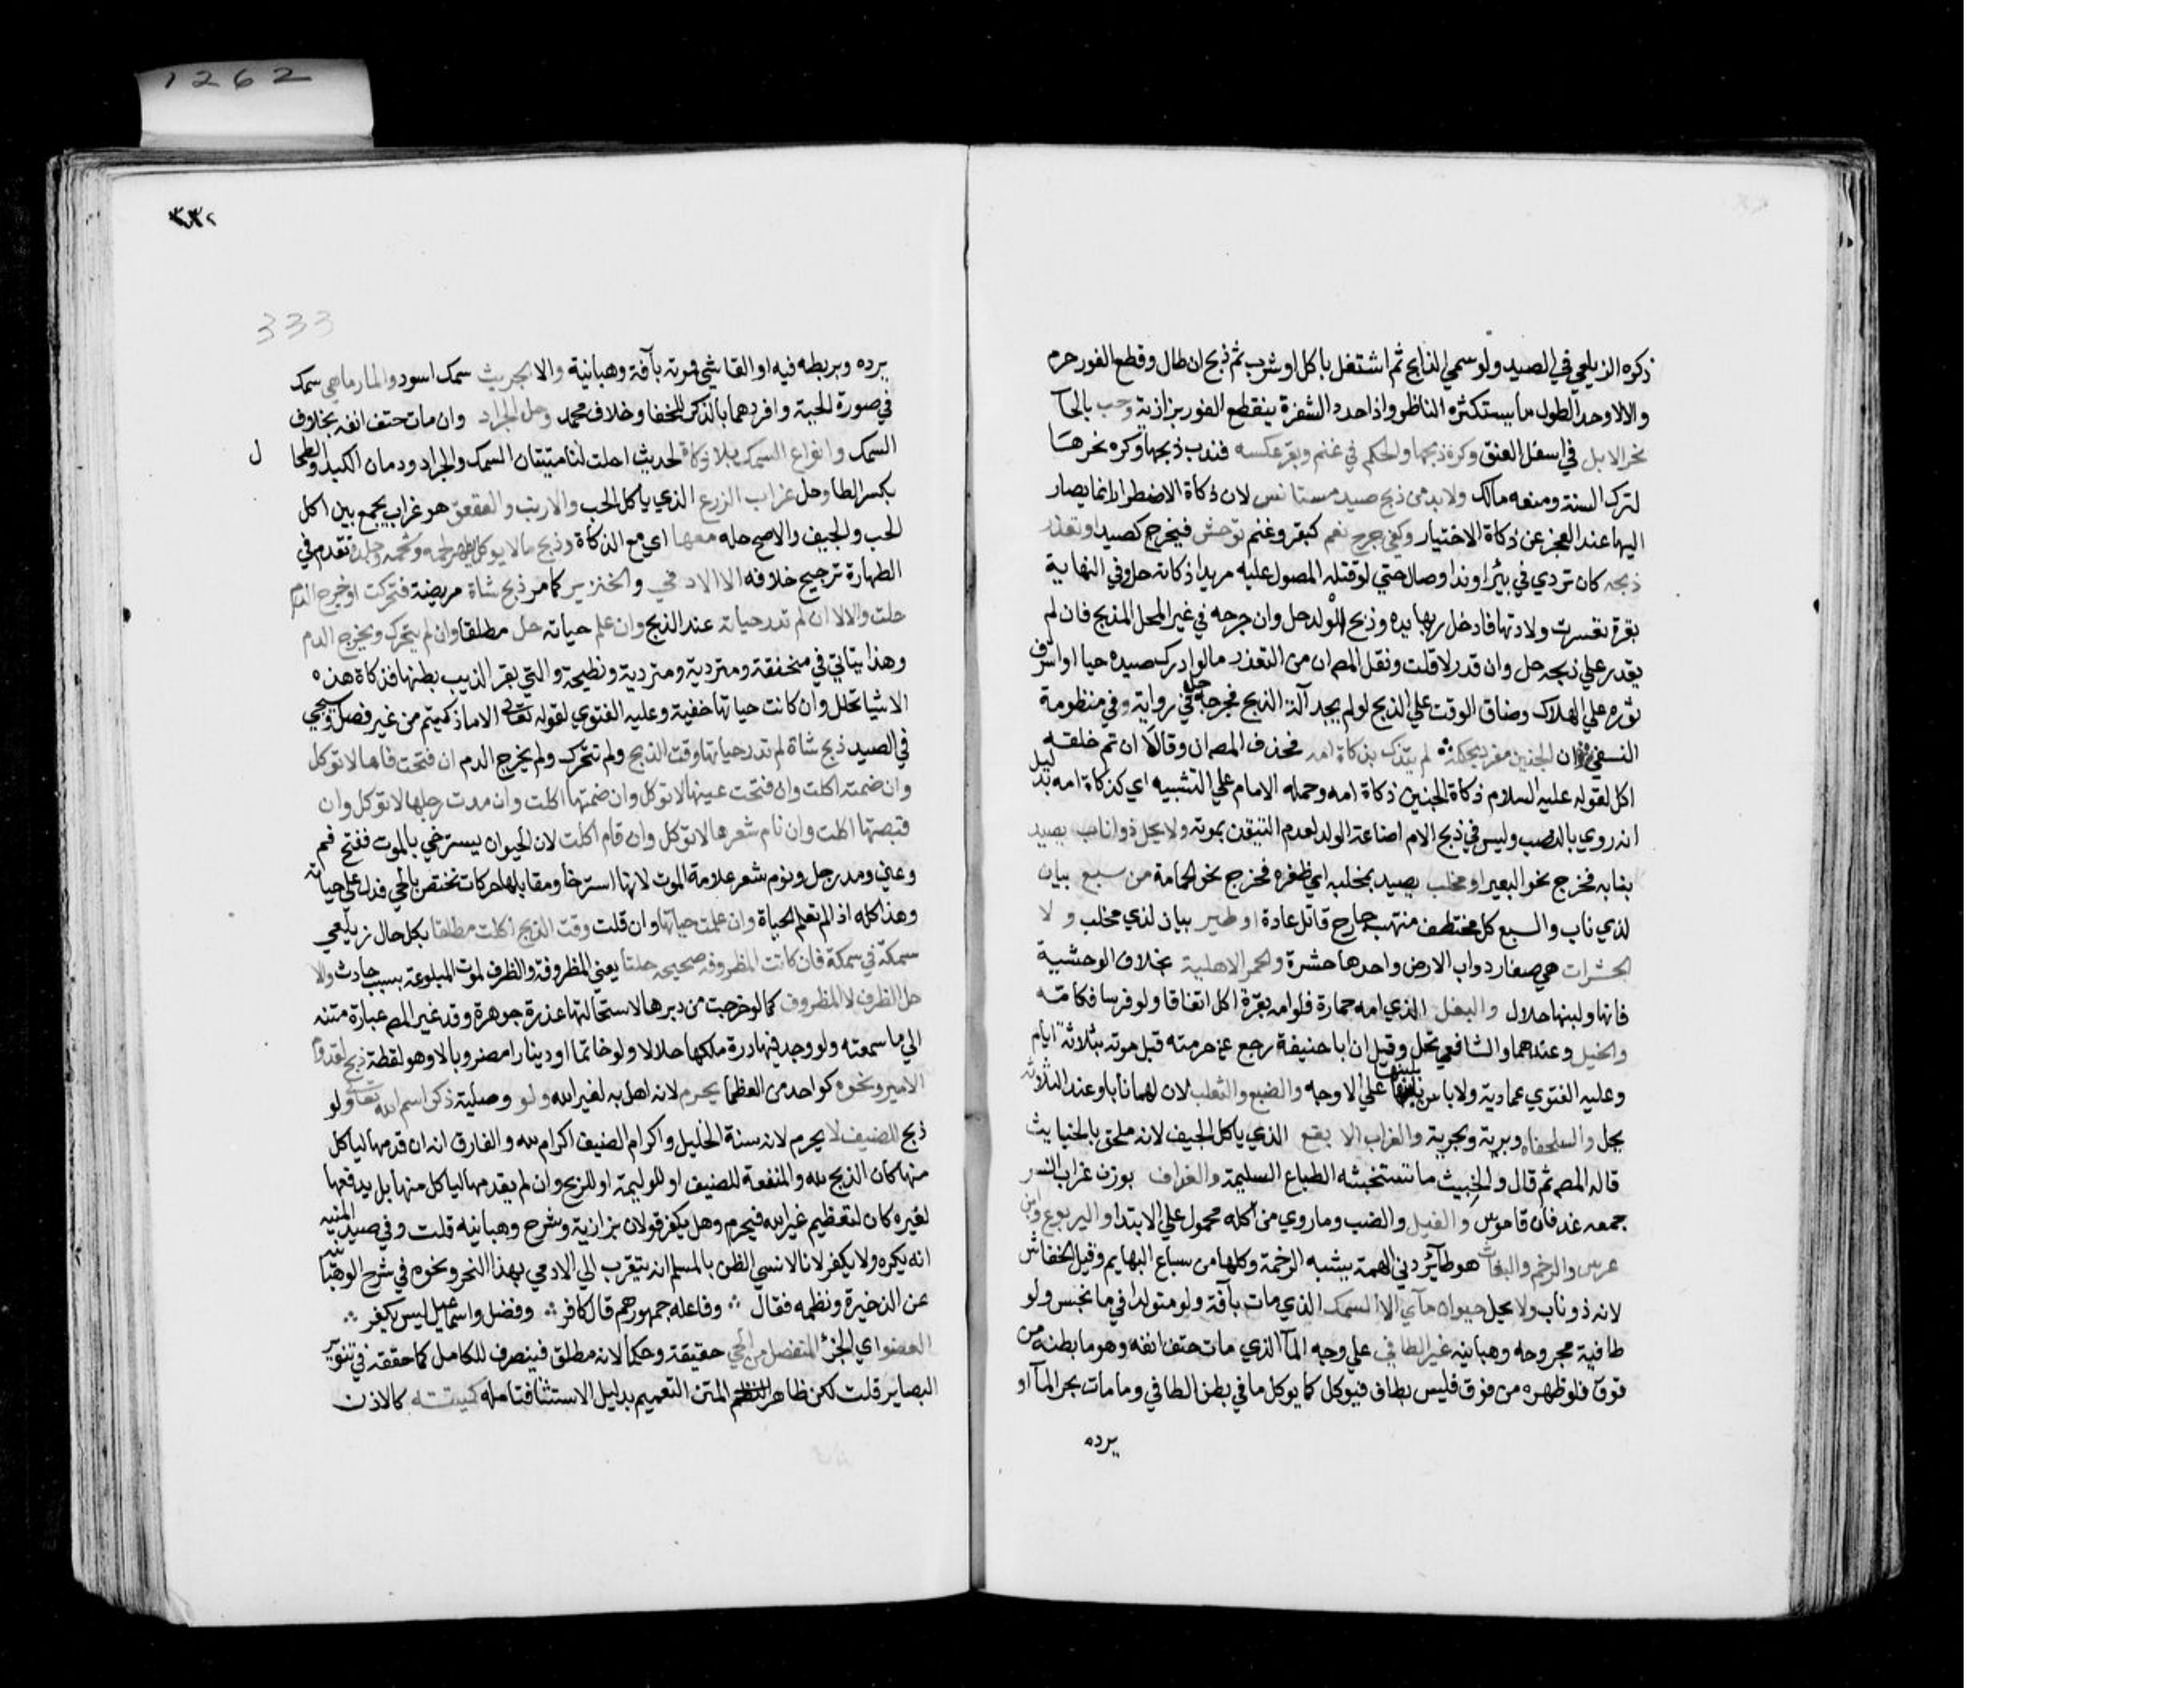 1262
ذكره الزيلعي في الصيد ولو سمي الذابح ثم اشتغل باكل او شرب ثم ذبح ان طال وقطع الفور حرم
والا لا وحد الطول ما يستكثره الناظر واذا حدد الشفرة ينقطع الفور بزازية وحب بالحآ
نحر الابل في اسفل العنق وكره ذبحها والحكم في غنم وبقر عكسه فندب ذبحها وكره نحرها
لترك السنة ومنعه مالك ولا بد من ذبح صيد مستانس لان ذكاة الاضطرار انما يصار
اليها عند العجز عن ذكاة الاختيار وكفي جرح نعم كبقر وغنم توحش فيجرح كصيد او تعذر
ذبحه كان تردي في بئر او ند او صال حتي لو قتله المصول عليه مريدا ذكاته حل وفي النهاية
بقرة تعسرت ولادتها فادخل ربها يده وذبح الولد حل وان جرحه في غير المحل المذبح فان لم
يقدر علي ذبحه حل وان قدر لا قلت ونقل المص ان من التعذر ما لو ادرك صيده حيا او اشرف
ثوره علي الهلاك وضاق الوقت علي الذبح لو لم يجد آلة الذبح فجرحه حل في رواية وفي منظومة
النسفي ان الجنين مفرد بحكمه لم يتذك بذكاة امه فحذف المص ان وقالا ان تم خلقه
اكل لقوله عليه السلام ذكاة الجنين ذكاة امه وحمله الامام علي التشبيه اي كذكاة امه بدليل
انه روي بالنصب وليس في ذبح الام اضاعة الولد لعدم التيقن بموته ولا يحل ذو اناب يصيد
بنابه فخرج نحو البعير او مخلب يصيد بمخلبه اي ظفره فخرج نحو الحمامة من سبع بيان
لذي ناب والسبع كل مختطف منتهب جارح قاتل عادة او طير بيان لذي مخلب ولا
الحشرات هي صغار دواب الارض واحدها حشرة والحمر الاهلية بخلاف الوحشية
فانها ولبنها حلال والبغل الذي امه حمارة فلو امه بقرة اكل اتفاقا ولو فرسا فكامه
والخيل وعندهما والشافعي تحل وقيل ان ابا حنيفة رجع عن حرمته قبل موته بثلاثة ايام
وعليه الفتوي عمادية ولا باس بلبنها علي الاوجه والضبع والثعلب لان لهما نابا وعند الثلاثة
يحل والسلحفاه وبرية وبحرية والغراب الابقع الذي ياكل الجيف لانه ملحق بالخبايث
قاله المص ثم قال والخبيث ما تستخبثه الطباع السليمة والغداف بوزن غراب النسر
جمعه غدفان قاموس والفيل والضب وما روي من اكله محمول علي الابتدا واليربوع وابن
عرس والرخم والبغاث هو طآئر دني الهمة يشبه الرخمة وكلها من سباع البهايم وقيل الخفاش
لانه ذو ناب ولا يحل حيوان مآي الا السمك الذي مات بآفة ولو متولدا في ما نجس ولو
طافية مجروحه وهبانيه غير الطافي علي وجه المآ الذي مات حتف انفه وهو ما بطنه من
فوق فلو ظهره من فوق فليس بطاف فيوكل كما يوكل ما في بطن الطافي وما مات بحر المآ او
يرده
٣٣٢
333
يرده وبربطه فيه او القا شي فموته بآفة وهبانية والا الجريث سمك اسود والمارماهي سمك
في صورة الحية وافردهما بالذكر للخفا وخلاف محمد وحل الجراد وان مات حتف انفه بخلاف
السمك وانواع السمك بلا ذكاة لحديث احلت لنا ميتتان السمك والجراد ودمان الكبد والطحا
ل
بكسر الطا وحل غراب الزرع الذي ياكل الحب والارنب والعقعق هو غراب يجمع بين اكل
الحب والجيف والاصح حله معها اي مع الذكاة وذبح ما لا يوكل يطهر لحمه وشحمه وجلده تقدم في
الطهارة ترجيح خلافه الا الادمي والخنزير كما مر ذبح شاة مريضة فتحركت او خرج الدم
حلت والا لا ان لم تدر حياته عند الذبح وان علم حياته حل مطلقا وان لم يتحرك ويخرج الدم
وهذا يتاتي في منخنقة ومتردية ومتردية ونطيحة والتي بقر الذيب بطنها فذكاة هذه
الاشيا تحلل وان كانت حياتها خفية وعليه الفتوي لقوله تعالى الا ما ذكيتم من غير فصل وسيجي
في الصيد ذبح شاة لم تدر حياتها وقت الذبح ولم تتحرك ولم يخرج الدم ان فتحت فاها لا توكل
وان ضمته اكلت وان فتحت عينها لا توكل وان ضمتها اكلت وان مدت رجلها لا توكل وان
قبضتها اكلت وان نام شعرها لا توكل وان قام اكلت لان الحيوان يسترخي بالموت ففتح فم
وعين ومد رجل ونوم شعر علامة الموت لانها استرخا ومقابلها حركات تختص بالحي فدل علي حياته
وهذا كله اذا لم تعلم الحياة وان علمت حياتها وان قلت وقت الذبح اكلت مطلقا بكل حال زيلعي
سمكة في سمكة فان كانت المظروفة صحيحه حلتا يعني المظروفة والظرف لموت المبلوعة بسبب حادث والا
حل الظرف لا المظروف كما لو خرجت من دبرها لاستحالتها عذرة جوهرة وقد غير المص عبارة متنه
الي ما سمعته ولو وجد فيها درة ملكها حلالا ولو خاتما او دينارا مضروبا لا وهو لقطة ذبح لقدوم
الامير ونحوه كواحد من العظما يحرم لانه اهل به لغير الله ولو وصلية ذكر اسم الله تعالى ولو
ذبح للضيف لا يحرم لانه سنة الخليل واكرام الضيف اكرام لله والفارق انه ان قدمها لياكل
منها كان الذبح لله والمنفعة للضيف او للوليمة او للربح وان لم يقدمها لياكل منها بل يدفعها
لغيره كان لتعظيم غير الله فيحرم وهل يكفر قولان بزازية وشرح وهبانيه قلت وفي صيد المنيه
انه يكره ولا يكفر لانا لا نسي الظن بالمسلم انه يتقرب الي الادمي بهذا النحر ونحوه في شرح الوهبانيه
عن الذخيرة ونظمه فقال ∴ وفاعله جمهورهم قال كافر ∴ وفضل واسماعيل ليس يكفر ∴
العضو اي الجزؤ المنفصل من الحي حقيقة وحكما لانه مطلق فينصرف للكامل كما حققه في تنوير
البصاير قلت لكن ظاهر المتن التعميم بدليل الاستثنا فتامله كميتته كالاذن